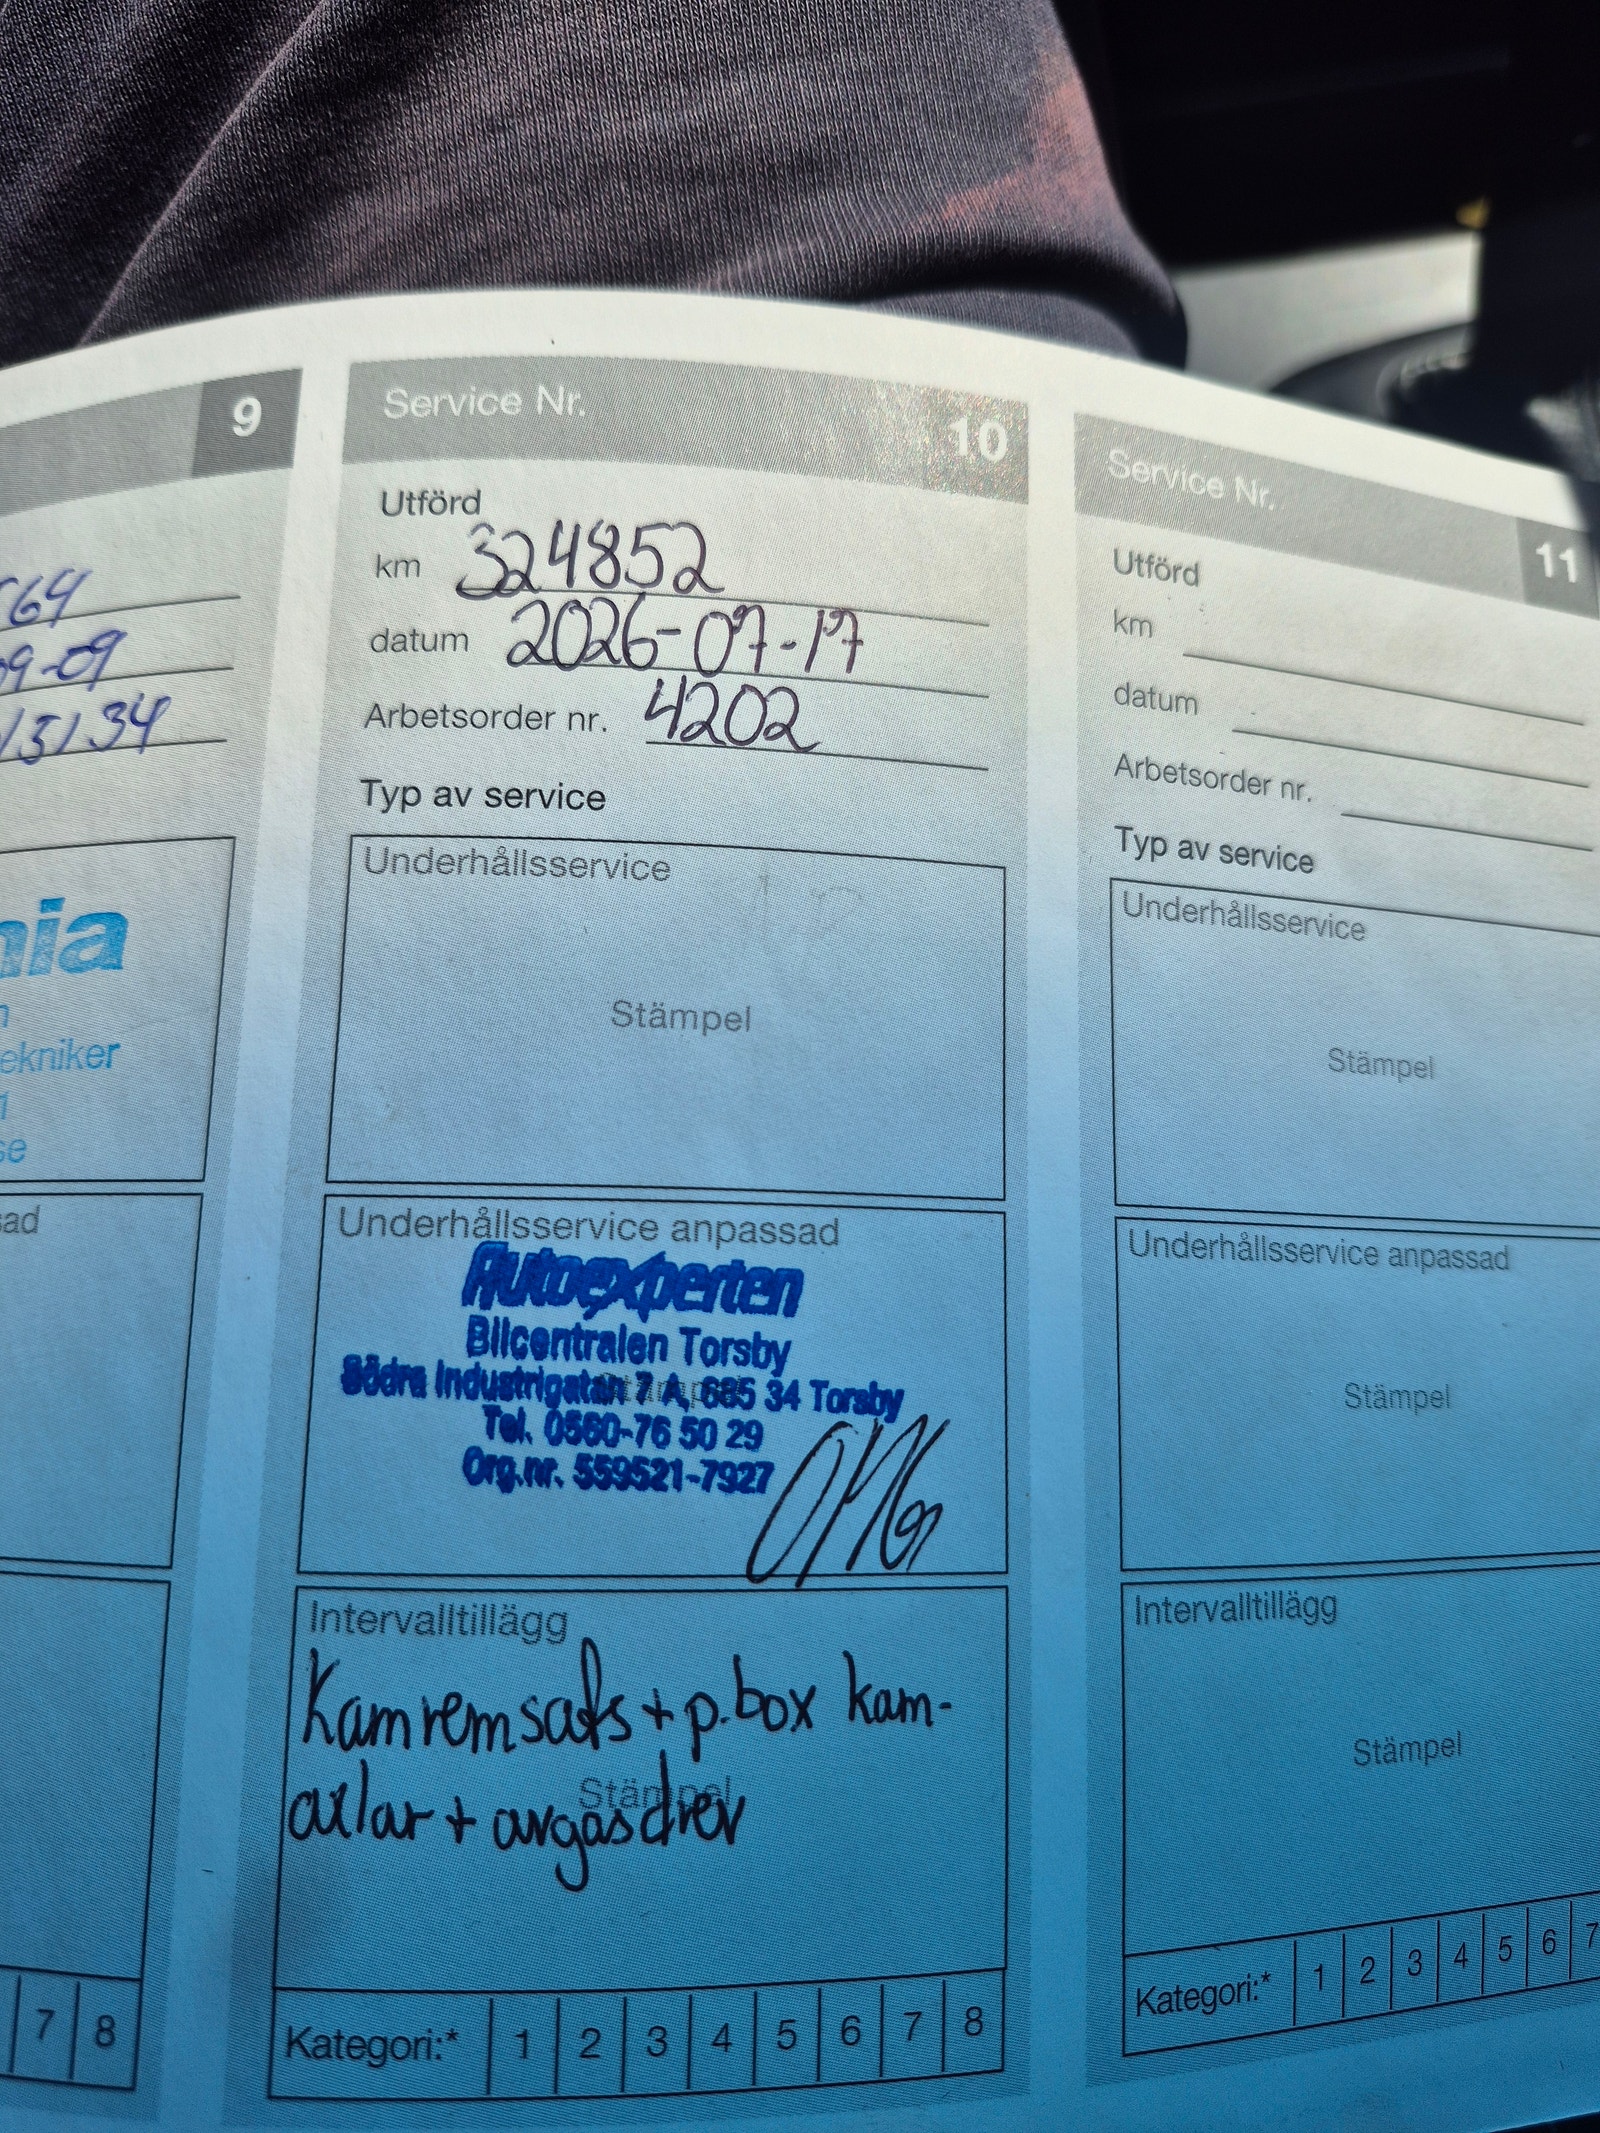 9
64
09-09
15134
nia
ekniker
1
se
sad
7 8
Service Nr. 10
Utförd
km 324852
datum 2026-07-17
Arbetsorder nr. 4202
Typ av service
Underhållsservice
Stämpel
Underhållsservice anpassad
Autoexperten
Bilcentralen Torsby
Södra Industrigatan 7 A, 685 34 Torsby
Tel. 0560-76 50 29
Org.nr. 559521-7927
Intervalltillägg
Kamremsats + p.box kam-
axlar + avgasdrev
Stämpel
Kategori:* 1 2 3 4 5 6 7 8
Service Nr. 11
Utförd
km
datum
Arbetsorder nr.
Typ av service
Underhållsservice
Stämpel
Underhållsservice anpassad
Stämpel
Intervalltillägg
Stämpel
Kategori:* 1 2 3 4 5 6 7